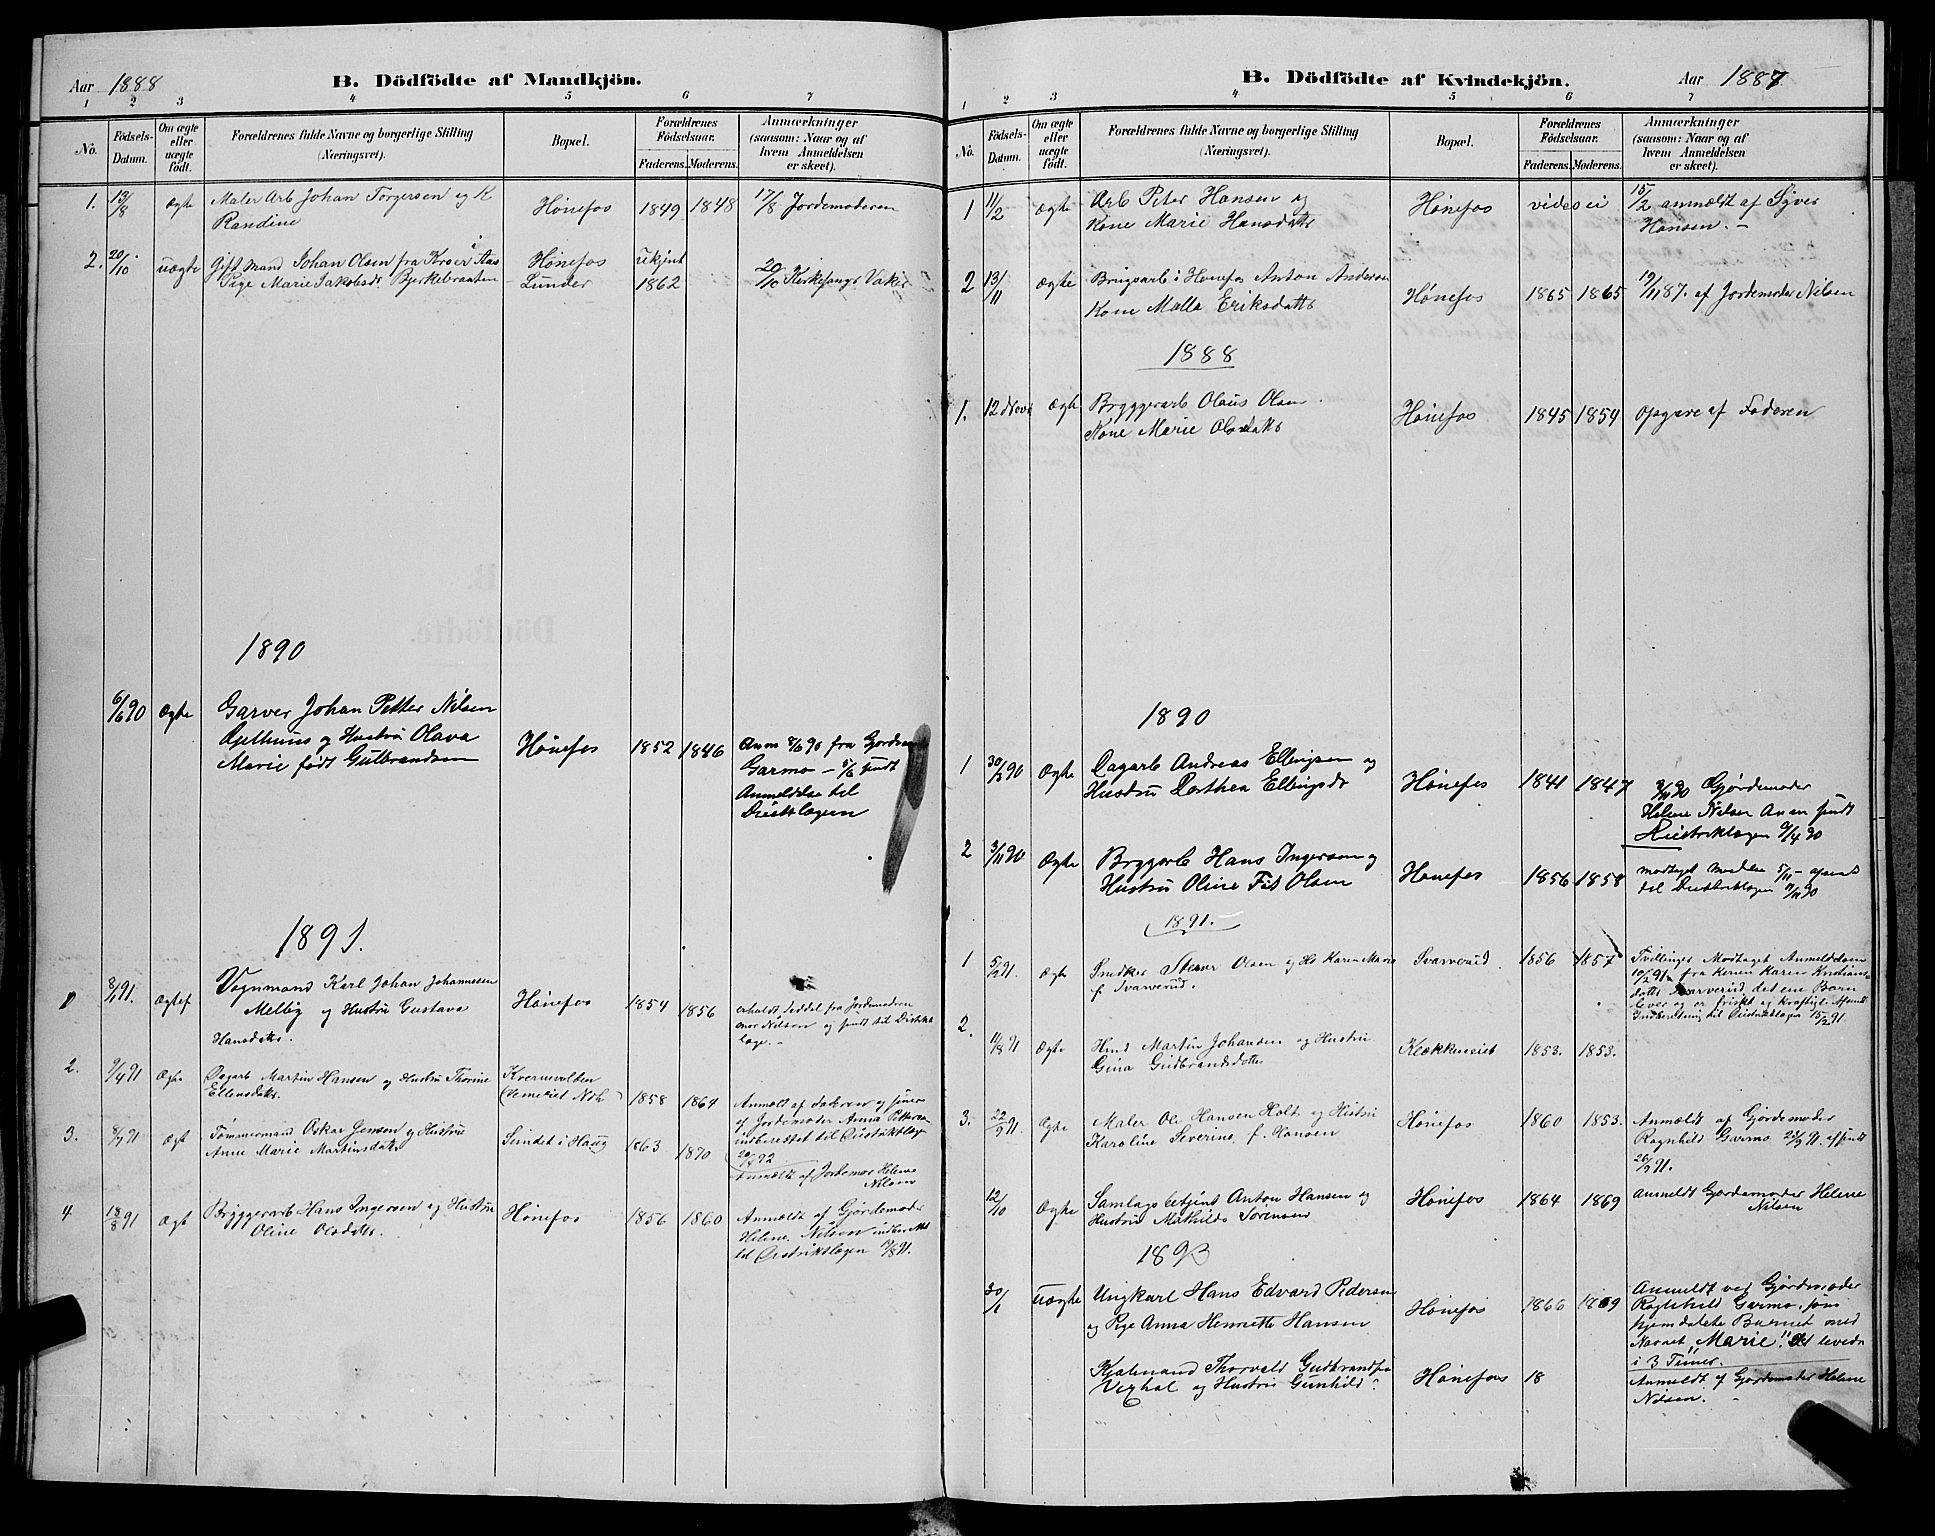 Aar 1888
B. Dödfödte af Mandkjön.
1 2 3 4 5 6 7
No.
Födsels-Datum.
Om ægte eller uægte födt.
Forældrenes fulde Navne og borgerlige Stilling
(Næringsvei).
Bopæl.
Forældrenes Födselsaar.
Faderens. Moderens.
Anmærkninger
(saasom: Naar og af
hvem Anmeldelsen
er skeet).
1. 13/8 ægte Maler Arb Johan Torgersen og K Hønefos 1849 1848 17/8 Jordemoderen
Randine
2. 20/10 uægte Gift Mand Johan Olsen fra Kroer i Aas Hønefos
Pige Marie Jakobsdt Bjerkebraaten Lunder 1862 20/10 Kirkesanger Vaker
1890
6/6 90 Ægte Garver Johan Petter Nilsen
og Hustru Olava Hønefos 1852 1846 Anm 8/6 90 fra Gjordem
Marie født Gulbrandsen Garmo – sendt
Anmeldelse til
Distrlægen
1891.
1 8/1 91. Ægtef Vognmand Karl Johan Johannessen
Melby og Hustru Gustava Hønefos 1854 1856 erholdt Seddel fra Jordemoderen
Hansdatter. Nilsen og sendt til Distrikt
læge. –
2. 9/4 91 Ægte Dagarb Martin Hansen og Hustru Thorine Kvernvolden
Ellensdatter. 1858 1864 Anmeldt af Faderen og siner
af Jordemoder Anna Pettersen
3. 8/7 91 Ægt Tømmermand Oskar Jensen og Hustru Sundet i Haug 1863 1870 indberettet til Distriktslæg
Anne Marie Martinsdatter 20/4 92.
Anmeldt af Jordemor Helene
Nilsen
4 18/8 91 Ægt Bryggerarb Hans Ingersen og Hustru Hønefos 1856 1860 Anmeldt af Gjordemoder
Oline Olsdatter. Helene Nilsen
til Distriktslægen 19/8 91.
B. Dödfödte af Kvindekjön.
Aar 1887
1 2 3 4 5 6 7
No.
Födsels-Datum.
Om ægte eller uægte födt.
Forældrenes fulde Navne og borgerlige Stilling
(Næringsvei).
Bopæl.
Forældrenes Födselsaar.
Faderens. Moderens.
Anmærkninger
(saasom: Naar og af
hvem Anmeldelsen
er skeet).
1 11/2 ægte Arb Peter Hansen og Hønefos vides ei 15/2 anmeldt af Syver
Kone Marie Hansdatter Hansen. –
2 13/11 ægte Brugsarb i Hønefos Anton Andersen
Kone Malla Eriksdatter Hønefos 1865 1865 19/11 87. af Jordemoder Nilsen
1888
1. 12 Novb Ægte Bryggerarb Olaus Olsen Hønefos 1845 1854 opgave af Faderen
Kone Marie Olsdatter
1890
1 30/3 90 Ægte Dagarb Andreas Ellingsen og Hønefos 1841 1847 Gjørdemoder
Hustru Dorthea Ellingsdr Helene Nilsen Anm sendt
Distriktlægen 9/4 90
2 3/11 90 Ægte Bryggarb Hans Ingersen og Hønefos 1856 1858 modtaget 5/11 – opsendt
Hustru Oline Fød Olsen til Distriktlægen 7/11 90
1891.
1 5/2 91. Ægte Snedker Olsen og H Karen Marie Svarverud 1856 1857 Tvillinger Modtaget Anmeldelsen
f. Svarverud. 10/2 91 fra Konen Karen Kristians
datter Svarverud, det ene Barn
lever og er friskt og kraftigt. Afsendt
Indberetning til Distriktslægen 15/2 91.
2. 11/8 91 Ægte Hmd Martin Johansen og Hustru Klækkeneiet 1853. 1853.
Gina Gudbrandsdatter
3. 22/9 91. Ægte Maler Ole Hansen Holt og Hustru Hønefos 1860 1853. Anmeldt af Gjordemoder
Karoline Severine f. Hansen Ragnhild Garmo 25/9 91. afsendt
26/9 91.
12/10 Ægte Samlags betjent Anton Hansen og Hønefos 1864 1869 Anmeldt Gjordemoder Helene
Hustru Mathilde Sørensen Nilsen
1893
30/1 uægte Ungkarl Hans Edvard Pedersen Hønefos 1866 1869 Anmeldt ved Gjordemoder
og Pige Anna Henriette Hansen Ragnhild Garmo, som
hjemdøbte Barnet med
Navnet "Marie". det levede
i 3 Timer.
Kjølemand Thorvald Gudbrandsen Hønefos 18 Anmeldt af Gjordemoder Helene
og Hustru Gunhild Nilsen.